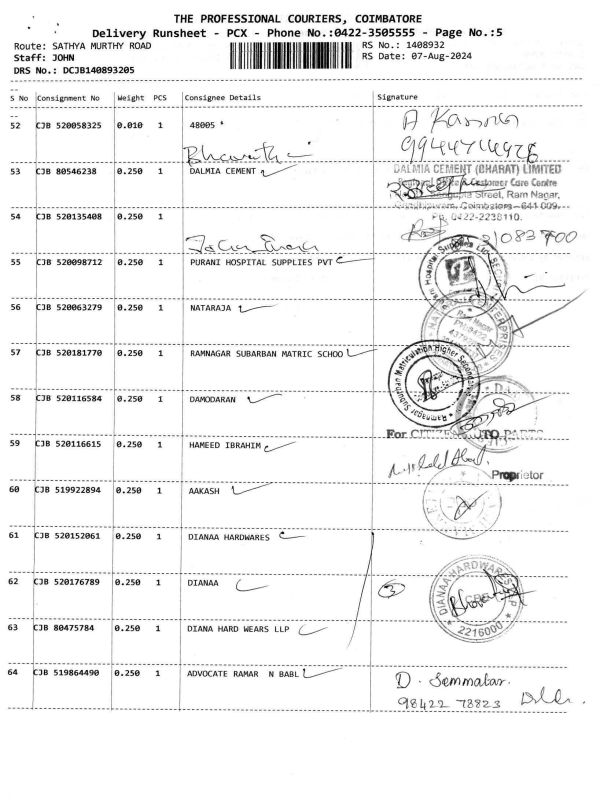 THE PROFESSIONAL COURIERS, COIMBATORE
Delivery Runsheet - PCX - Phone No.:0422-3505555 - Page No.:5
Route: SATHYA MURTHY ROAD
RS No.: 1408932
Staff: JOHN
RS Date: 07-Aug-2024
DRS No.: DCJB140893205
S No Consignment No Weight PCS Consignee Details Signature
52 CJB 520058325 0.010 1 48005
9944714976
53 CJB 80546238 0.250 1 DALMIA CEMENT
DALMIA CEMENT (BHARAT) LIMITED
Customer Care Centre
Street, Ram Nagar,
Coimbatore - 641 009.
Ph. 0422-2238110.
54 CJB 520135408 0.250 1
55 CJB 520098712 0.250 1 PURANI HOSPITAL SUPPLIES PVT
56 CJB 520063279 0.250 1 NATARAJA
57 CJB 520181770 0.250 1 RAMNAGAR SUBARBAN MATRIC SCHOO
Ramnagar Suburban Matriculation Higher Secondary
58 CJB 520116584 0.250 1 DAMODARAN
For CITIZEN AUTO PARTS
59 CJB 520116615 0.250 1 HAMEED IBRAHIM
Proprietor
60 CJB 519922894 0.250 1 AAKASH
61 CJB 520152061 0.250 1 DIANAA HARDWARES
62 CJB 520176789 0.250 1 DIANAA
3
DIANAA HARDWARES LLP
CBE
2216000
63 CJB 80475784 0.250 1 DIANA HARD WEARS LLP
64 CJB 519864490 0.250 1 ADVOCATE RAMAR N BABL
D. Semmalar.
98422 78823